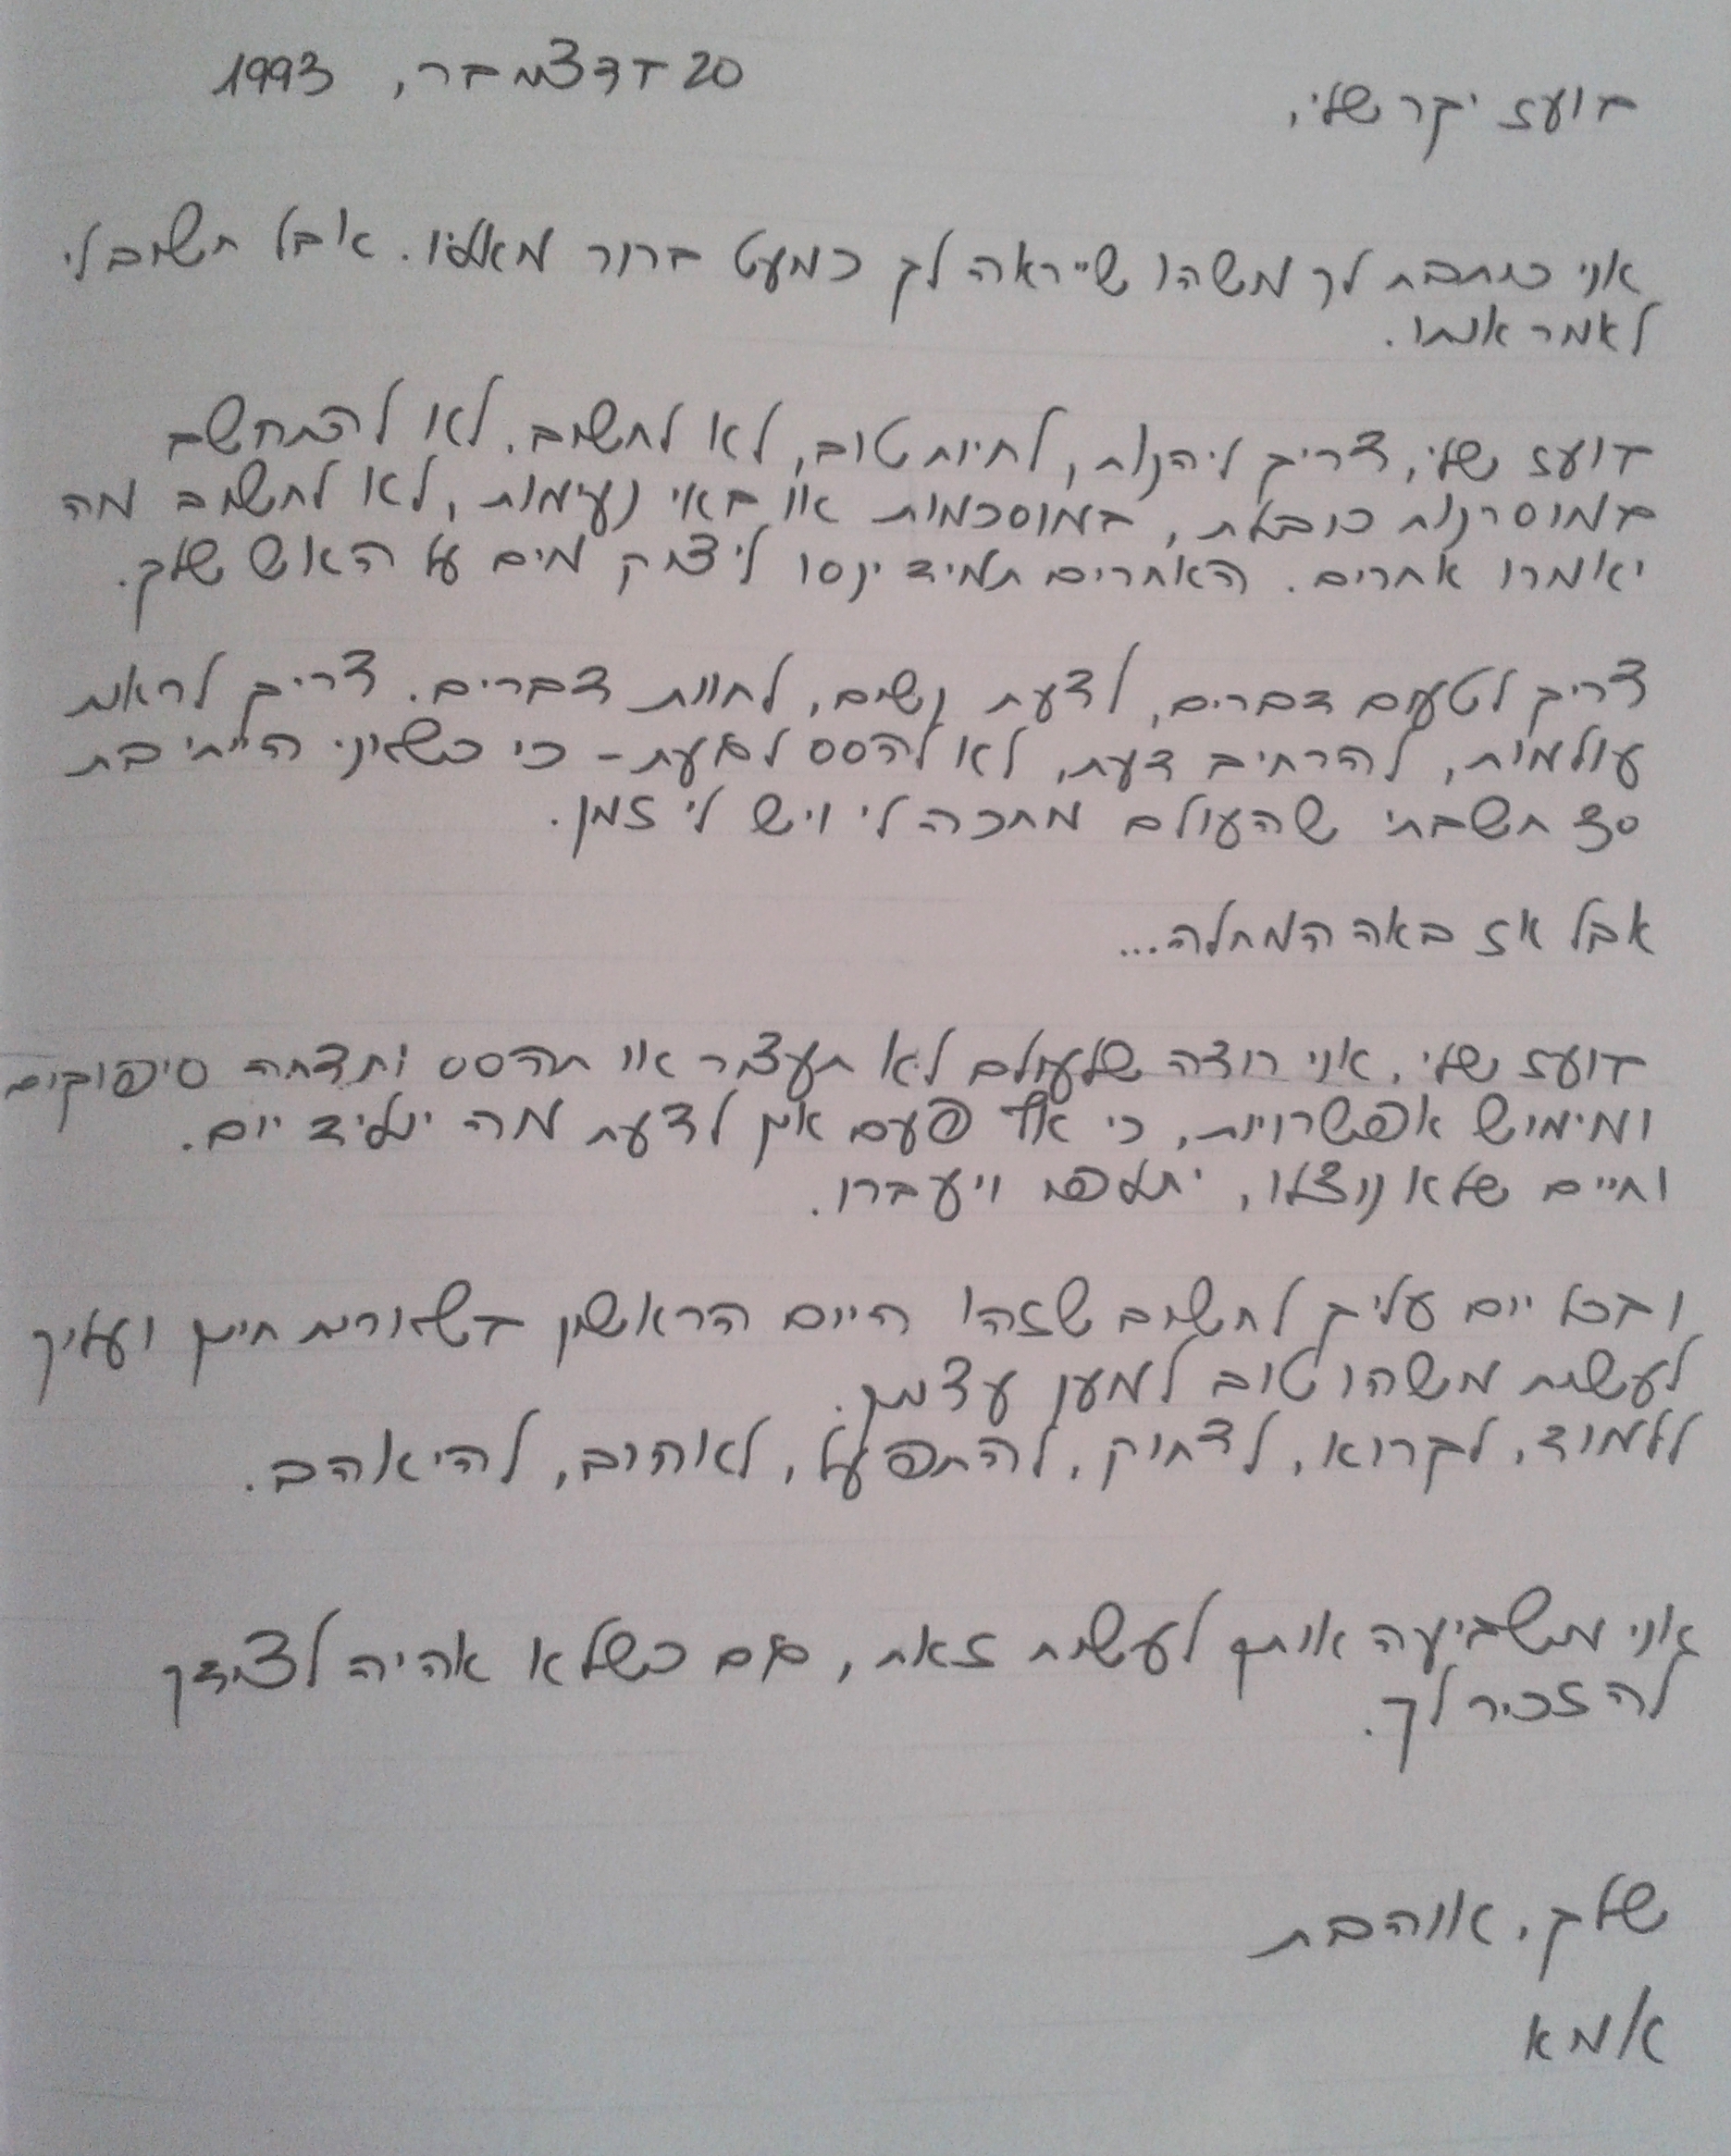 20 דצמבר, 1993
בועז יקר שלי,
אני כותבת לך משהו שייראה לך כמעט ברור מאליו. אבל חשוב לי
לאמר אותו.
בועז שלי, צריך ליהנות, לחיות טוב, לא לחשוב. לא להתחשב
במוסרנות כובלת, במוסכמות או באי נעימות, לא לחשוב מה
יאמרו אחרים. האחרים תמיד ינסו ליצוק מים על האש שלך.
צריך לטעום דברים, לדעת נשים, לחוות דברים. צריך לראות
עולמות, להרחיב דעת, לא להסס לגעת - כי כשאני הייתי בת
30 חשבתי שהעולם מחכה לי ויש לי זמן.
אבל אז באה המחלה...
בועז שלי, אני רוצה שלעולם לא תעצר או תהסס ותדחה סיפוקים
ומימוש אפשרויות, כי אף פעם אין לדעת מה יוליד יום.
וחיים שלא נוצלו, יחלפו ויעברו.
ובכל יום עליך לחשוב שזהו היום הראשון בשארית חייך ועליך
לעשות משהו טוב למען עצמך.
ללמוד, לקרוא, לצחוק, להתפעל, לאהוב, להיאהב.
אני משביעה אותך לעשות זאת, גם כשלא אהיה לצידך
להזכיר לך.
שלך, אוהבת
אמא